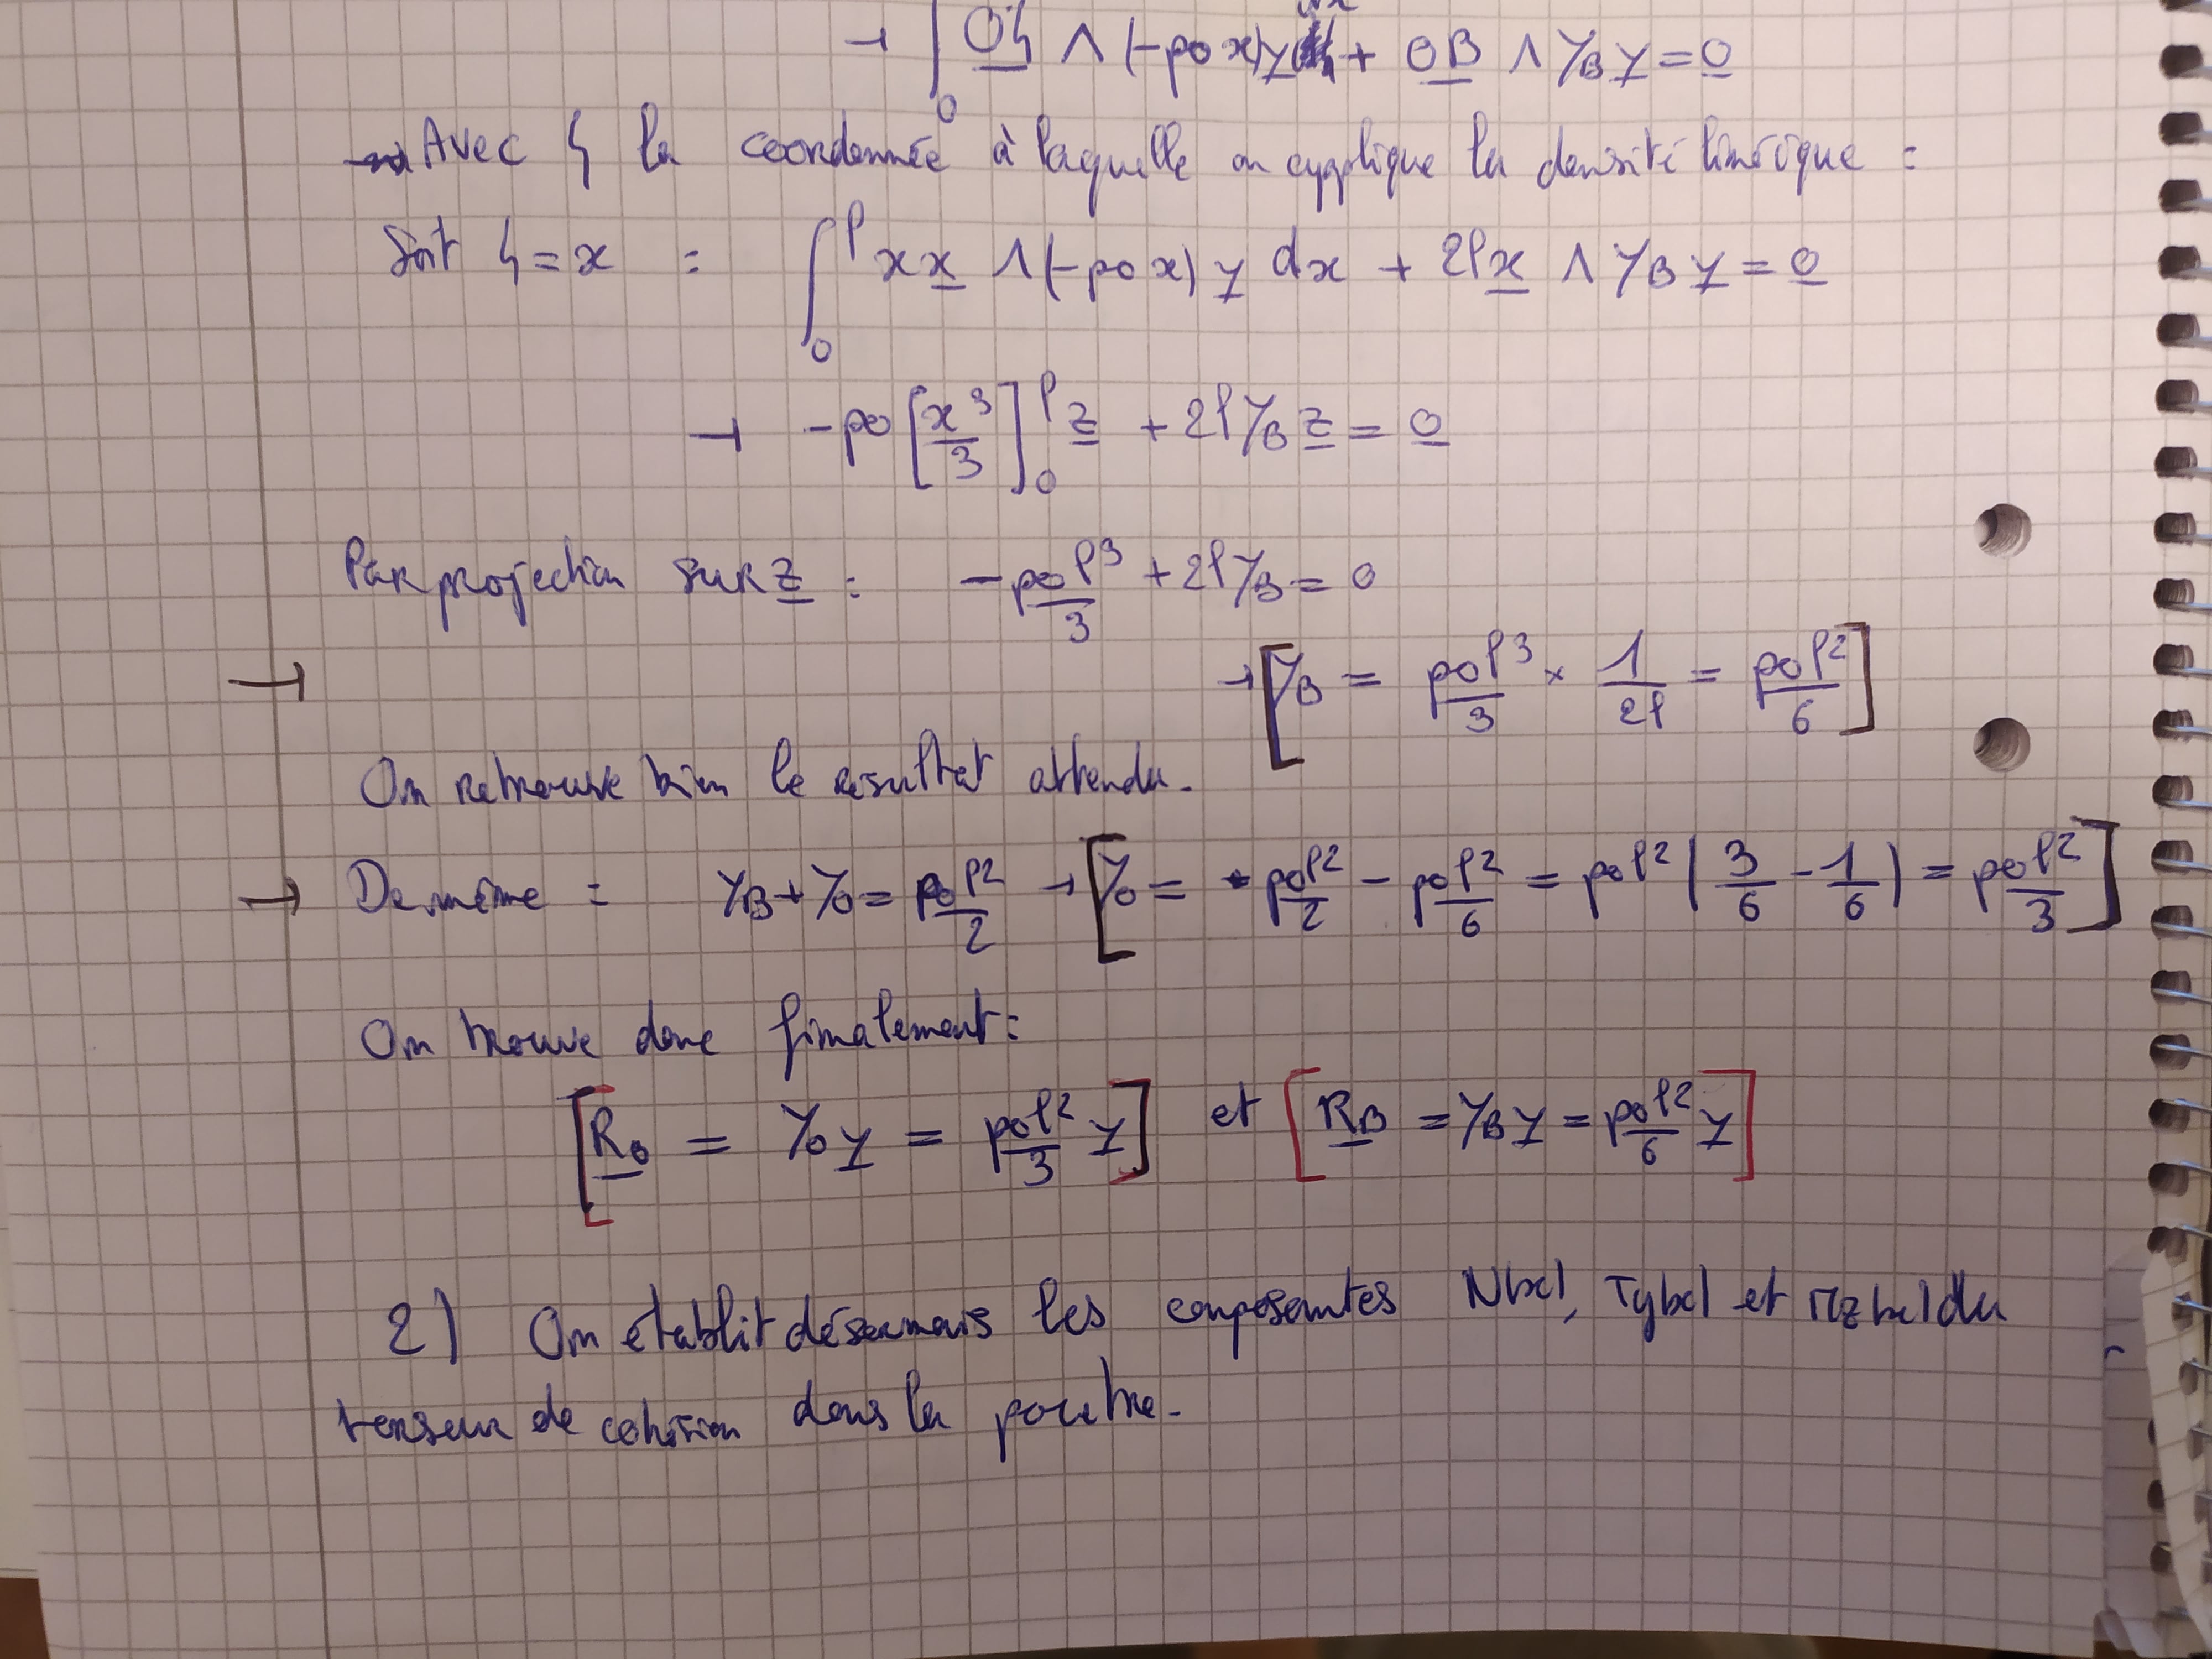 → ∫₀ Oζ ∧ (-p0 x) y dx + OB ∧ YB y = 0
→ Avec ζ la coordonnée à laquelle on applique la densité linéique :
Soit ζ = x : ∫₀^l x x ∧ (-p0 x) y dx + 2l x ∧ YB y = 0
→ -p0 [x³/3]₀^l z + 2l YB z = 0
Par projection sur z : -p0 l³/3 + 2l YB = 0
→ [YB = p0 l³/3 × 1/2l = p0 l²/6]
On retrouve bien le résultat attendu.
→ De même : YB + Y0 = p0 l²/2 → [Y0 = p0 l²/2 - p0 l²/6 = p0 l² (3/6 - 1/6) = p0 l²/3]
On trouve donc finalement :
[R0 = Y0 y = p0 l²/3 y] et [RB = YB y = p0 l²/6 y]
2) On établit désormais les composantes N(x), Ty(x) et Mz(x) du
tenseur de cohésion dans la poutre.